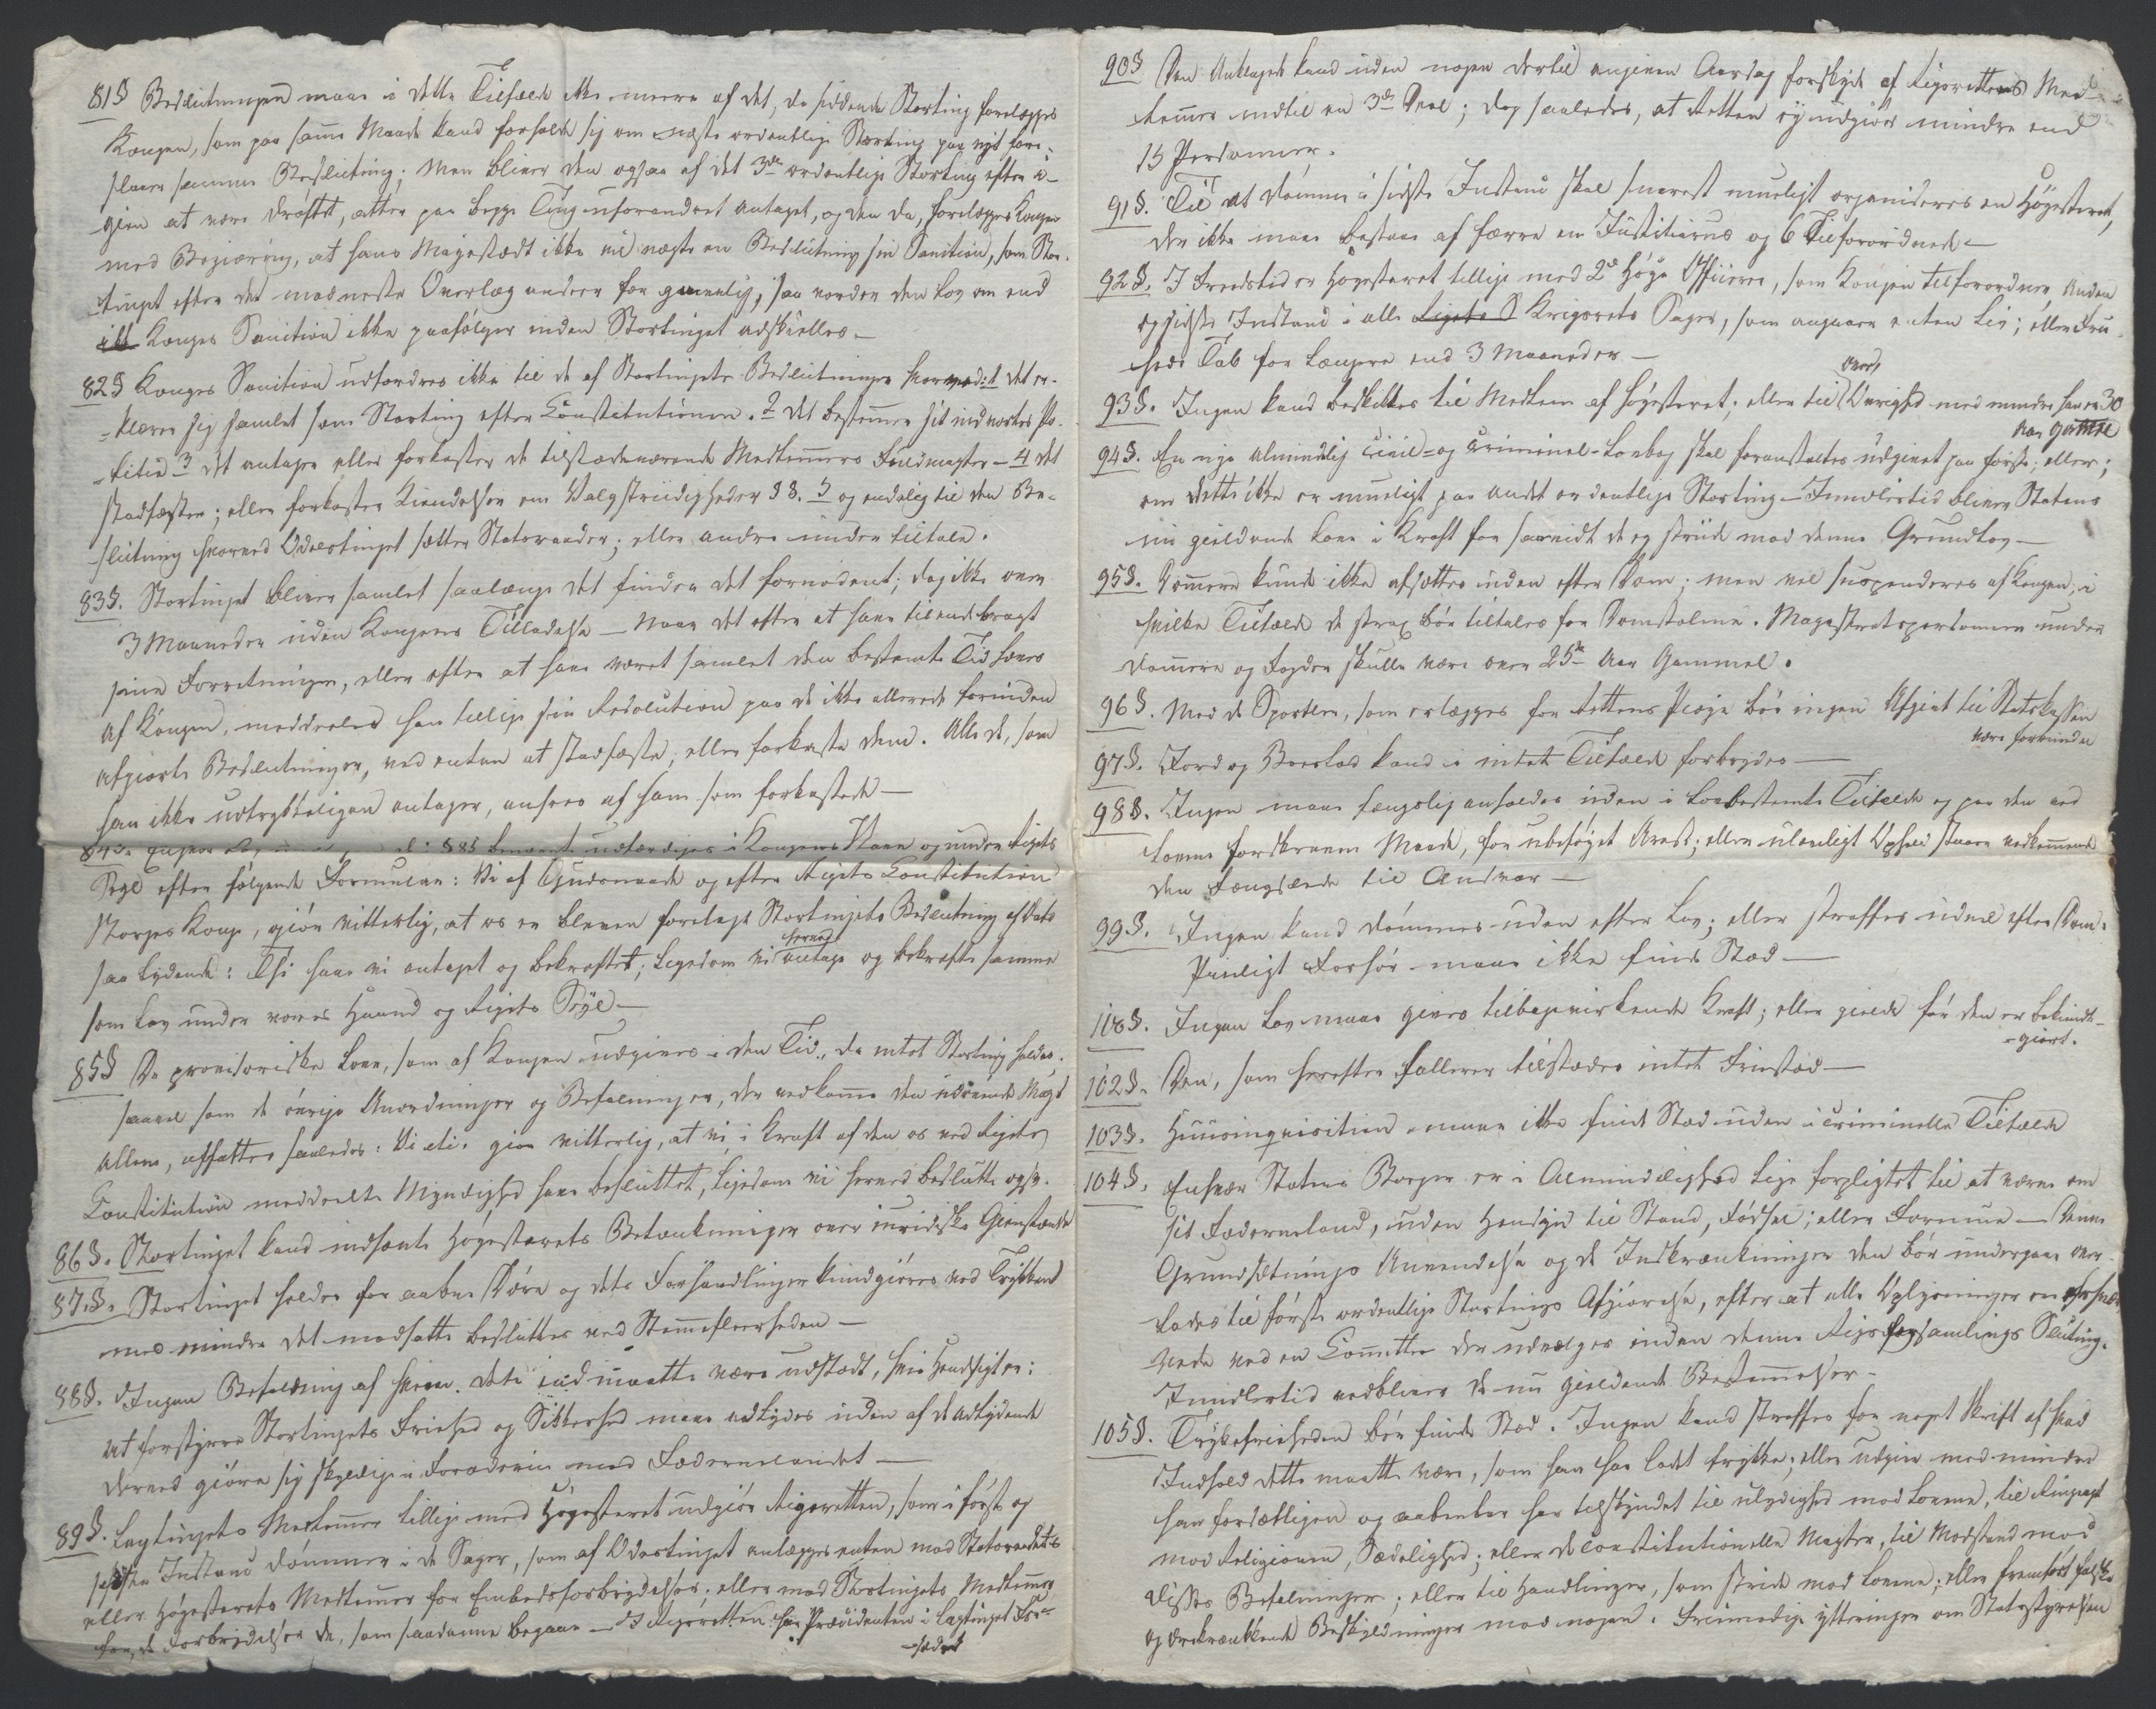 81§ Beslutningen maae i dette Tilfælde ikke meere af det, da siddende Storting forelægges
Kongen, som paa samme Maade kand forholde sig om næste ordentlige Storting paa nyt fore-
slaaer samme Beslutning; Men bliver den ogsaa af det 3die ordentlige Storting efter i-
gien at være drøftet, atter paa begge Ting uforandret antaget, og den da, forelægges Kongen
med Begiæring, at hans Majestædt ikke vil nægte en Beslutning sin Sanction, som Stor-
tinget efter det modneste Overlæg anseer for gavnlig, saa vorder den Lov om end
Konges Sanction ikke paafølger inden Stortinget adskilles.-
82§ Konges Sanction udfordres ikke til de af Stortingets Beslutninger hvorved: 1 det er-
-klærer sig samlet som Storting efter Constitutionen. 2 det bestemmer sit indvortes Po-
-litie 3 det antager eller forkaster de tilstædeværende Medlemmers Fuldmagter - 4 det
stadfæster; eller forkaster Kiendelser om Valgstridigheder §§. 5 og endelig til den Be-
slutning hvorved Odelstinget sætter Statsraader; eller andre under tiltale.
83§. Stortinget bliver samlet saalænge det finder det fornødent; dog ikke over
3 Maaneder uden Kongens Tilladelse - Naar det efter at have tilendebragt
sine Forretninger, eller efter at have været samlet den bestemte Tid hæves
af Kongen, meddeeles han tillige sin Resolution paa de ikke allerede forinden
afgiorte Beslutninger, ved enten at stadfæste, eller forkaste dem. Alle de, som
han ikke udtrykkeligen antager, ansees af ham som forkastede -
84§. Enhver Lov udfærdiges i Kongens Navn og under Rigets
Segl efter følgende Formular: Vi af Gudsnaade og efter Rigets Constitution
Norges Konge, giør vitterlig, at os er bleven forelagt Stortingets Beslutning af Dato
hermed
saa lydende: Thi have vi antaget og bekræftet, ligesom vi antage og bekræfte samme
som Lov under vores Haand og Rigets Segl -
85§ De provisoriske Love, som af Kongen udgives i den Tid, da intet Storting holdes,
saavel som de øvrige Anordninger og Befalninger, der vedkomme den udøvende Magt
allene, affattes saaledes: Vi etc. giør vitterlig, at vi, i Kraft af den os ved Rigets
Constitution meddeelte Myndighed have besluttet, ligesom vi herved beslutte ogs.
86§. Stortinget kand indhente Højesterets Betænkninger over juridiske Gienstande
87.§. Stortinget holdes for aabne Døre og dets Forhandlinger kundgiøres ved Trykken
med mindre det modsatte besluttes ved Stemmefleerheden -
88§. Ingen Befalning af hvem det end maatte være udstædt, hvis Hensigt er:
at forstyrre Stortingets Friehed og Sikkerhed maae adlydes uden af de adlydende
derved giøre sig skyldige i Forræderie mod Fædrenelandet -
89§. Lagtingets Medlemmer tillige med Højesteret udgiør Rigsretten, som i første og
sidste Instans dømmer i de Sager, som af Odelstinget anlægges enten mod Statsraadets
eller Højesterets Medlemmer for Embedsforbrydelser; eller mod Stortingets Medlemmer
for de Forbrydelser de, som saadanne begaae - I Rigsretten har Præsidenten i Lagtinget For-
-sædet
90§ Den Anklagede kand uden nogen dertil angiven Aarsag forskyde af Rigsrettens Med-
lemmer indtil en 3die Deel; dog saaledes, at Retten ej udgiør mindre end
15 Personer.
91§. Til at dømme i sidste Instans skal snarest mueligt organiseres en Højesteret,
der ikke maae bestaae af færre en Justitiarius og 6 Tilforordnede -
92§. I Fredstid er Højesteret tillige med 2de høye Officerer, som Kongen tilforordner, Anden
og sidste Instans i alle Krigsrets Sager, som angaaer enten Liv; eller Frie-
heds Tab for længere end 3 Maaneder -
Over
93§. Ingen kand beskikkes til Medlem af Højesteret; eller til Øvrighed med mindre han er 30
Aar Gammel
94§. En nye almindelig Civil- og Criminel-Lovbog skal foranstaltes udgivet paa første; eller;
om dette ikke er mueligt paa andet ordentlige Storting - Imidlertid bliver Statens
nu gieldende Love i Kraft for saavidt de ej stride mod denne Grundlov -
95§. Dommere kunde ikke afsættes uden efter Dom; men vel suspenderes af Kongen, i
hvilke Tilfælde de strax bør tiltales for Domstolene. Magistratspersoner under
Dommere og Fogder skulle være over 25te Aar Gammel.
96§. Med de Sportler, som erlægges for Rettens Pleje bør ingen Afgivt til Statskassen
være forbunden
97§. Jord og Boeslod kand i intet Tilfælde forbrydes -
98§. Ingen maae fængslig anholdes uden i Lovbestemte Tilfælde og paa den ved
Lovene forskrevne Maade, for ubeføjet Arest; eller ulovligt Ophold staaer vedkommende
den Fængslede til Ansvar -
99§. Ingen kand dømmes uden efter Lov; eller straffes uden efter Dom.
Pinligt Forhør maae ikke finde Stæd -
§. Ingen Lov maae gives tilbagevirkende Kraft; eller gielde før den er bekiendt-
-giort.
102§. Den, som herefter fallerer tilstædes intet Friestæd -
103§. Huusinquisition maae ikke finde Stæd uden i criminelle Tilfælde
104§. Enhver Statens Borger er i Almindelighed lige forpligtet til at værne om
sit Fæderneland, uden Hensyn til Stand, Fødsel; eller Formue - Denne
Grundsætnings Anvendelse og de Indskrænkninger den bør undergaae over-
-lades til første ordentlige Stortings Afgiørelse, efter at alle Oplysninger er erhver-
vede ved en Comittee der udvælges inden denne Rigsforsamlings Slutning.
Imidlertid vedbliver de nu gieldende Bestemmelser -
105§. Trykkefrieheden bør finde Stæd. Ingen kand straffes for noget Skrift af hvad
Indhold dette maatte være, som han har ladet trykke; eller udgive med mindre
han forsætligen og aabenbar har tilskyndet til ulydighed mod Lovene, til Ringeagt
mod Religionen, Sædelighed; eller de constitutionelle Magter, til Modstand mod
disses Befalninger; eller til Handlinger, som stride mod Lovene; eller fremført falske
og ærekrænkende Beskyldninger mod nogen. Frimodige ytringer om Statsstyrelsen